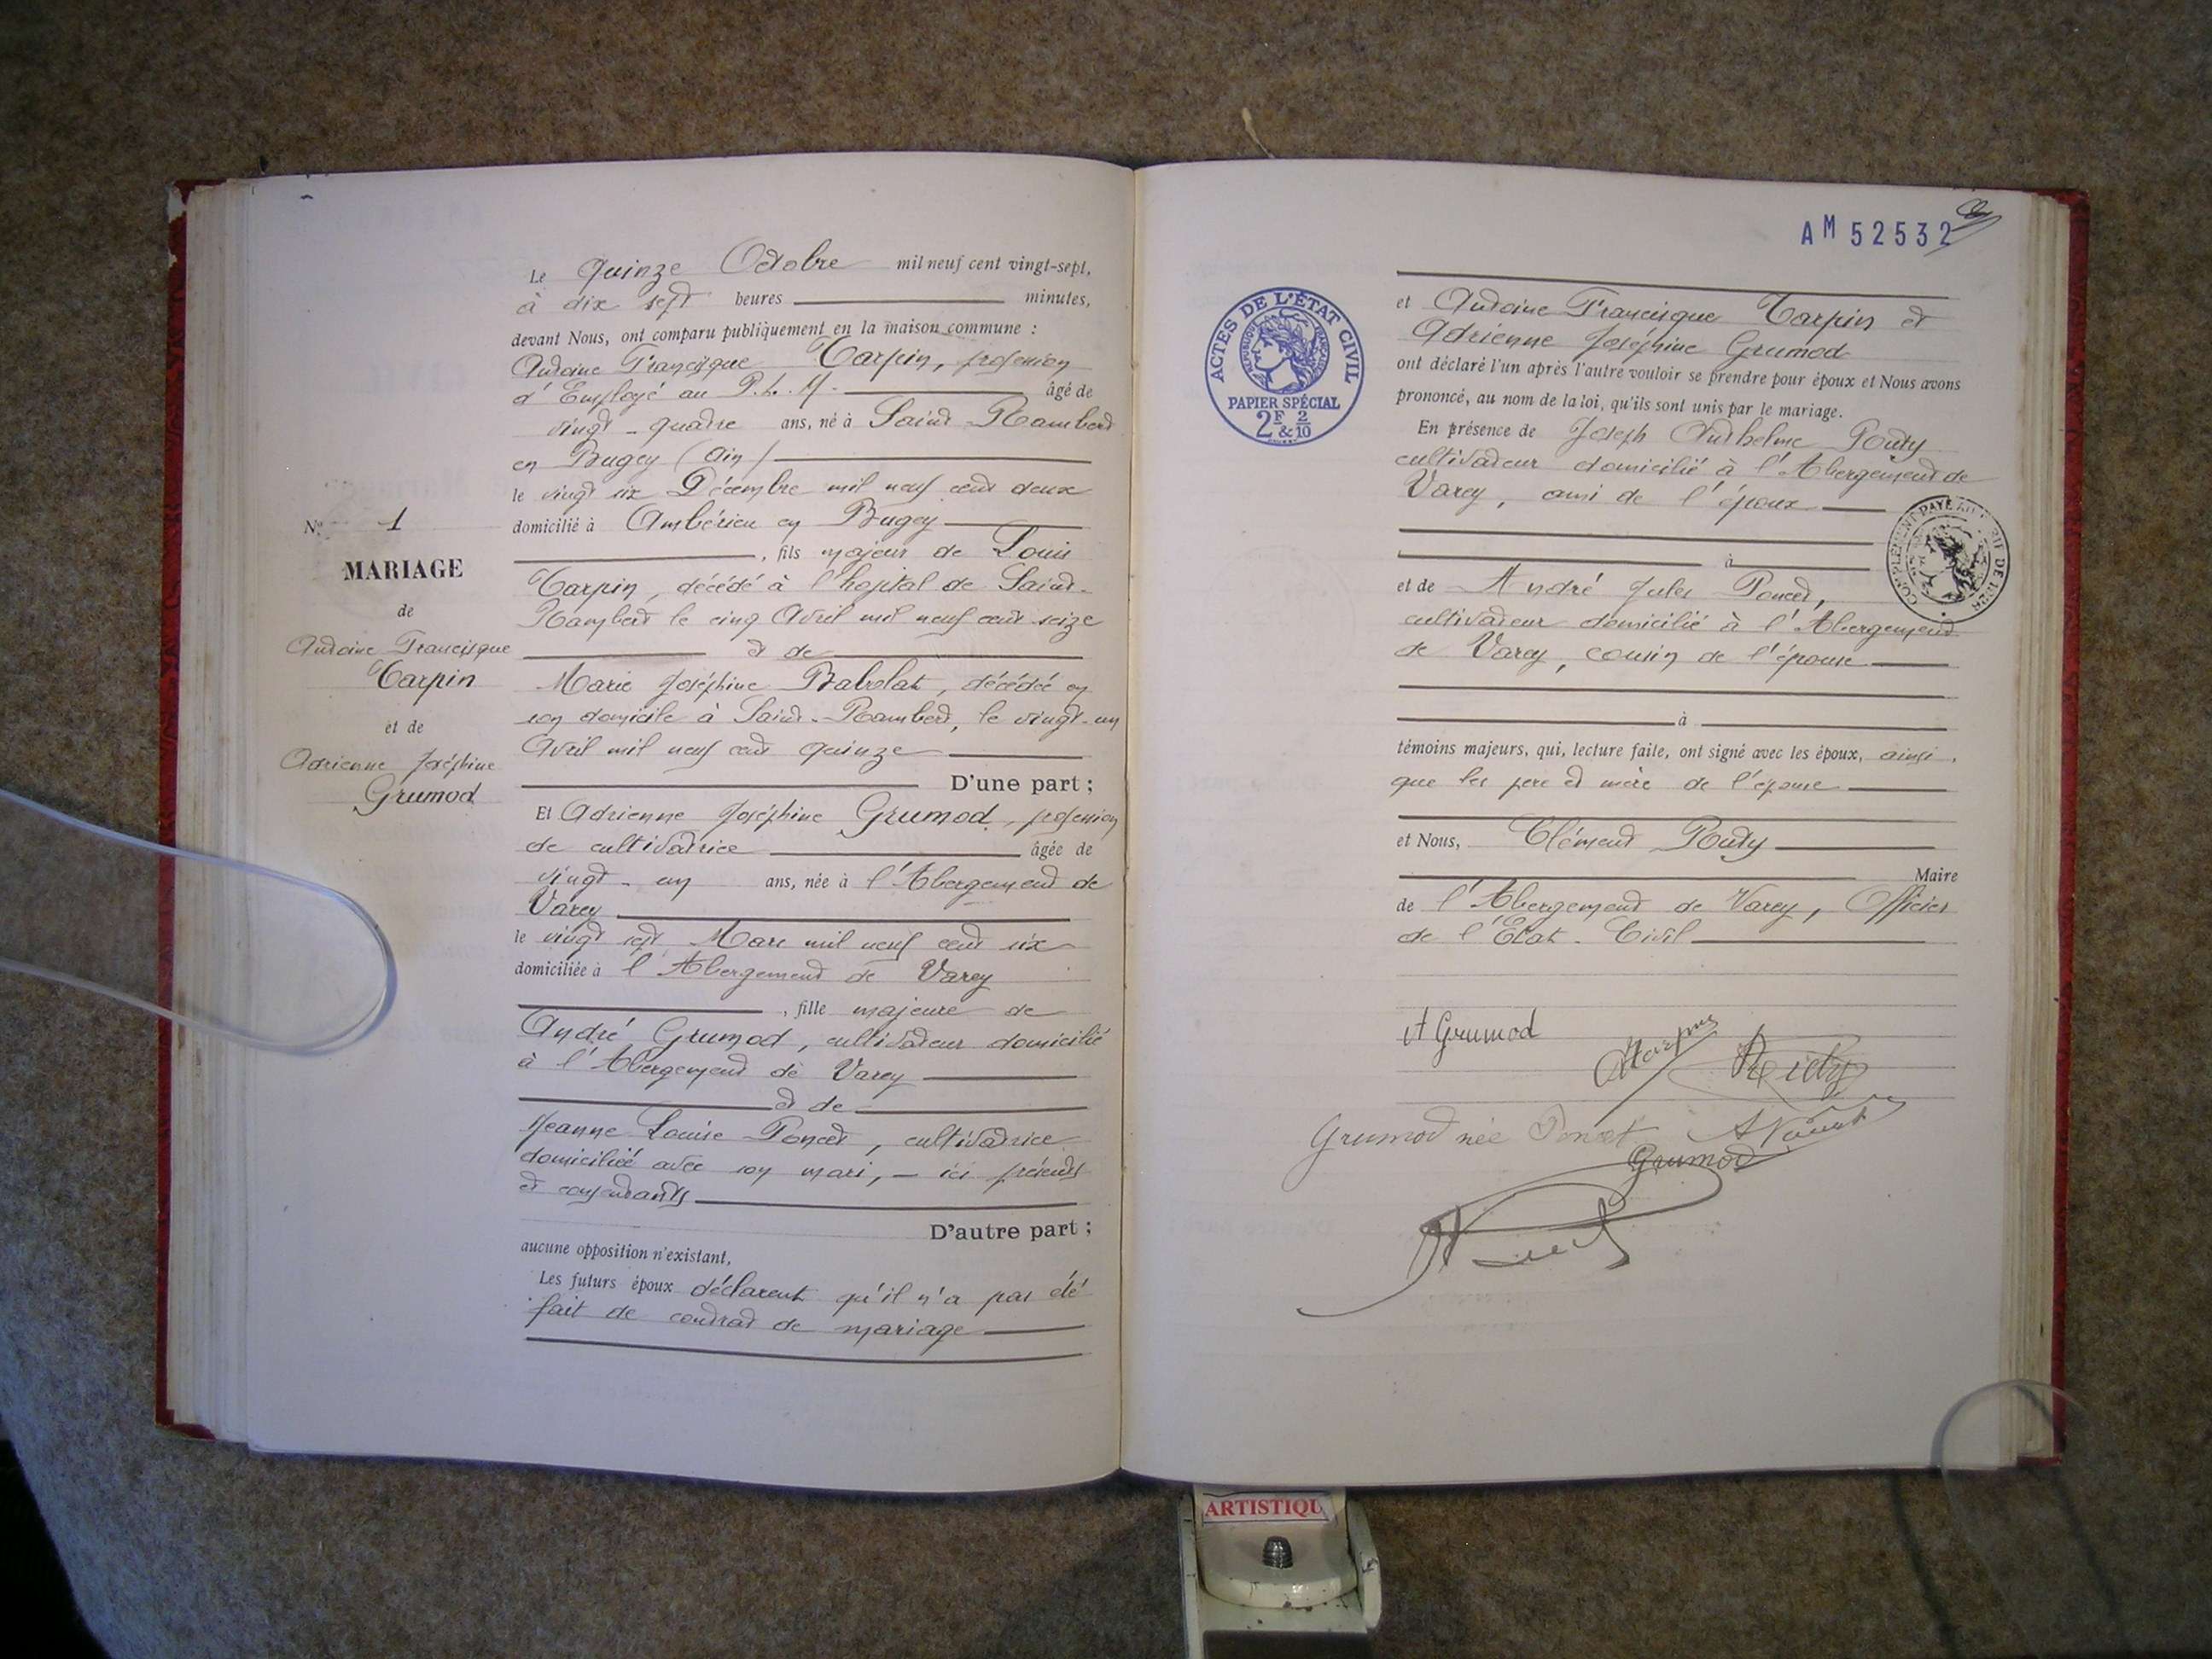 Le Quinze Octobre mil neuf cent vingt-sept,
à dix sept heures minutes,
devant Nous, ont comparu publiquement en la maison commune :
Antoine Francisque Tarpin, profession
d'Employé au P.L.M. âgé de
vingt-quatre ans, né à Saint-Rambert
en Bugey (Ain)
le vingt six Décembre mil neuf cent deux
domicilié à Ambérieu en Bugey
, fils majeur de Louis
Tarpin, décédé à l'hopital de Saint-
Rambert le cinq Avril mil neuf cent seize
et de
Marie Joséphine Babolat, décédée en
son domicile à Saint-Rambert, le vingt-un
Avril mil neuf cent quinze
D'une part ;
Et Adrienne Joséphine Grumod, profession
de cultivatrice âgée de
vingt-un ans, née à l'Abergement de
Varey
le vingt sept Mars mil neuf cent six
domiciliée à l'Abergement de Varey
, fille majeure de
André Grumod, cultivateur domicilié
à l'Abergement de Varey
et de
Jeanne Louise Poncet, cultivatrice
domiciliée avec son mari, - ici présents
et consentants
D'autre part ;
aucune opposition n'existant,
Les futurs époux déclarent qu'il n'a pas été
fait de contrat de mariage
No 1
MARIAGE
de
Antoine Francisque
Tarpin
et de
Adrienne Joséphine
Grumod
AM 52532
ACTES DE L'ÉTAT CIVIL
RÉPUBLIQUE FRANÇAISE
PAPIER SPÉCIAL
2F & 2/10
et Antoine Francisque Tarpin et
Adrienne Joséphine Grumod
ont déclaré l'un après l'autre vouloir se prendre pour époux et Nous avons
prononcé, au nom de la loi, qu'ils sont unis par le mariage.
En présence de Joseph Anthelme Routy
cultivateur domicilié à l'Abergement de
Varey, ami de l'époux
à
et de André Jules Poncet,
cultivateur domicilié à l'Abergement
de Varey, cousin de l'épouse
à
témoins majeurs, qui, lecture faite, ont signé avec les époux, ainsi
que les père et mère de l'épouse
et Nous, Clément Routy
Maire
de l'Abergement de Varey, Officier
de l'État-Civil
A Grumod
Grumod née Poncet
Grumod
ARTISTIQU